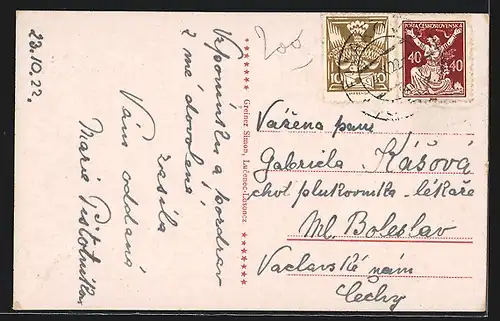 23.10.22.
Vzpomínku a pozdrav
z mé dovolené
zasílá
Vám oddaná
Marie
Greiner Simon, Lučenec-Losoncz
200
POŠTA ČESKOSLOVENSKÁ
40 40
10 10
Vážená paní
Gabriela Kášová
choť plukovníka-lékaře
Ml. Boleslav
Václavské nám
Čechy